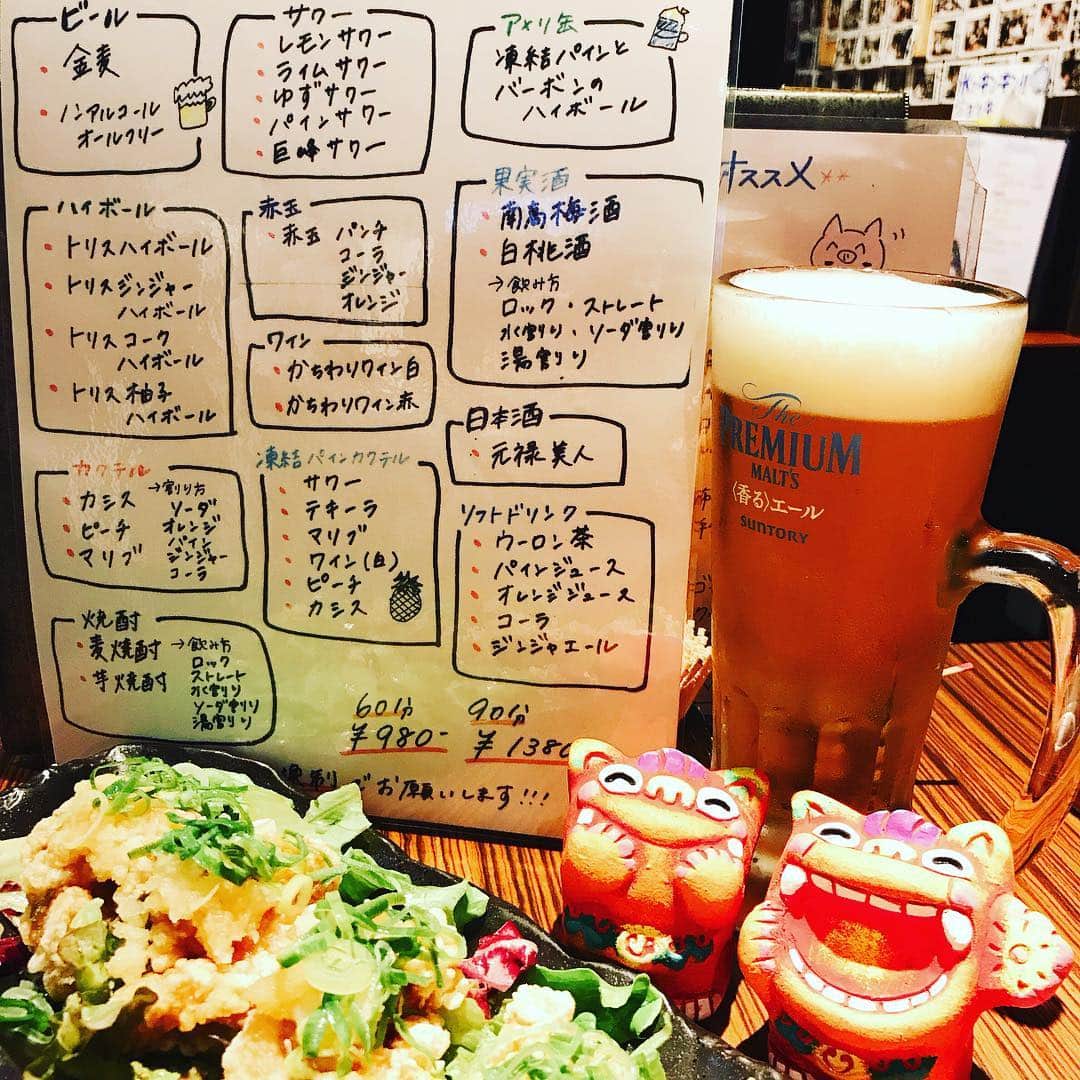 ビール
金麦
ノンアルコール
オールフリー
サワー
レモンサワー
ライムサワー
ゆずサワー
パインサワー
巨峰サワー
アメリ缶
凍結パインと
バーボンの
ハイボール
ハイボール
トリスハイボール
トリスジンジャー
ハイボール
トリスコーク
ハイボール
トリス柚子
ハイボール
赤玉
赤玉 パンチ
コーラ
ジンジャー
オレンジ
ワイン
かちわりワイン白
かちわりワイン赤
果実酒
南高梅酒
白桃酒
→飲み方
ロック・ストレート
水割り・ソーダ割り
湯割り
日本酒
元禄美人
カクテル
カシス →割り方
ピーチ ソーダ
マリブ オレンジ
パイン
ジンジャー
コーラ
凍結パインカクテル
サワー
テキーラ
マリブ
ワイン(白)
ピーチ
カシス
ソフトドリンク
ウーロン茶
パインジュース
オレンジジュース
コーラ
ジンジャエール
焼酎
麦焼酎 →飲み方
芋焼酎 ロック
ストレート
水割り
ソーダ割り
湯割り
60分 90分
¥980- ¥1380
でお願いします!!!
オススメ**
The
PREMIUM
MALT'S
〈香る〉エール
SUNTORY